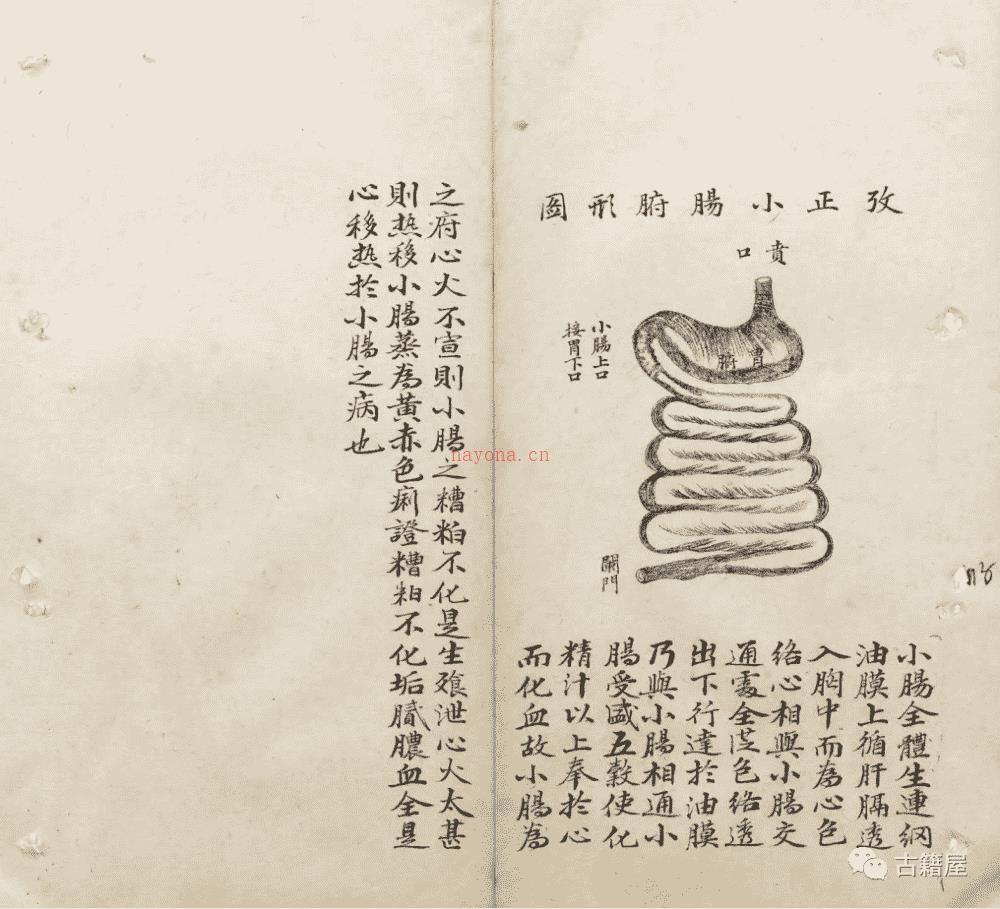 攷正小腸腑形圖
賁
口
胃腑
小腸上口
接胃下口
闌門
小腸全體生連網
油膜上循肝膈透
入胸中而為心色
絡心相與小腸交
通處全從色絡透
出下行達於油膜
乃與小腸相通小
腸受盛五穀使化
精汁以上奉於心
而化血故小腸為
之府心火不宣則小腸之糟粕不化是生飱泄心火太甚
則热移小腸蒸為黃赤色痢證糟粕不化垢膩膿血全是
心移热於小腸之病也
nayona.cn
古籍屋